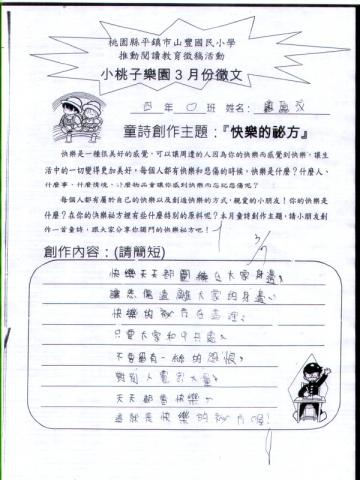 桃園縣平鎮市山豐國民小學
推動閱讀教育徵稿活動
小桃子樂園3月份徵文
四 年 班 姓名：
童詩創作主題：『快樂的祕方』
快樂是一種很美好的感覺，可以讓周遭的人因為你的快樂而感覺到快樂，讓生
活中的一切變得更加美好。每個人都有快樂和悲傷的時候，快樂是什麼？什麼人、
什麼事、什麼情境、什麼物品會讓你感到快樂而忘記悲傷呢？
每個人都有屬於自己的快樂以及創造快樂的方式，親愛的小朋友！你的快樂是
什麼？在你的快樂祕方裡有些什麼特別的原料呢？本月童詩創作主題，請小朋友創
作一首童詩，跟大家分享你獨門的快樂祕方吧！
創作內容：(請簡短)
快樂天天都圍繞在大家身邊，
讓悲傷遠離大家的身邊。
快樂的祕方在這裡，
只要大家和平共處，
不要留有一絲的怨恨，
對別人寬宏大量，
天天都會快樂，
這就是快樂的祕方喔！